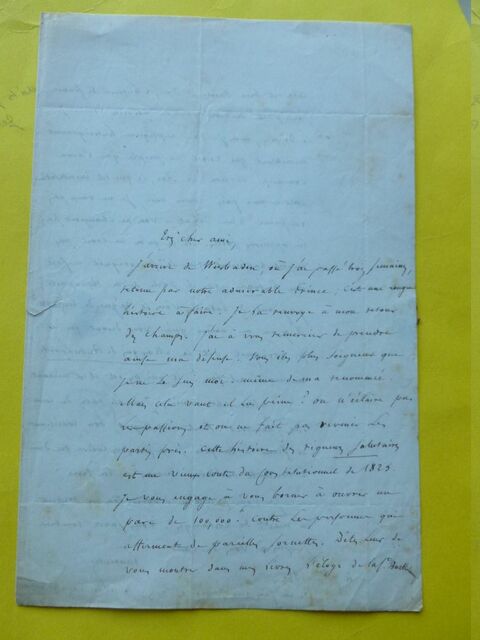 Très cher ami,
J'arrive de Wiesbaden, où j'ai passé trois semaines,
retenu par notre admirable Prince. C'est une longue
histoire à faire. Je la renvoye à mon retour
des champs. J'ai à vous remercier de prendre
ainsi ma défense. Vous êtes plus soigneux que
je ne le suis moi-même de ma renommée
Mais cela vaut il la peine ? on n'éclaire pas
les passions et on ne fait pas revenir les
partis pris. Cette histoire des rigueurs salutaires
est un vieux conte du Constitutionnel de 1823.
Je vous engage à vous borner à ouvrir un
pari de 100,000 f. contre les personnes qui
affirment de pareilles sornettes. Dites leur de
vous montrer dans mes écrits l'éloge de la St. Barth